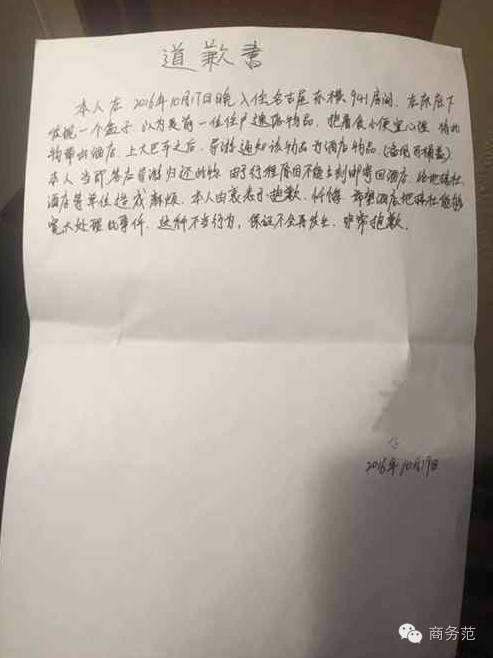 道歉書
本人在2016年10月17日晚入住名古屋东横941房间,在床底下
发现一个盒子,以为是前一位住户遗留物品,抱着贪小便宜心理,将此
物带出酒店,上大巴车之后,导游通知该物品为酒店物品(备用马桶盖)
本人当即答应导游归还此物,由于行程原因不能立刻邮寄回酒店,给地接社
酒店等单位造成麻烦,本人由衷表示抱歉,忏悔,希望酒店地接社能够
宽大处理此事件,这种不当行为,保证不会再发生,非常抱歉.
2016年10月19日
商务范